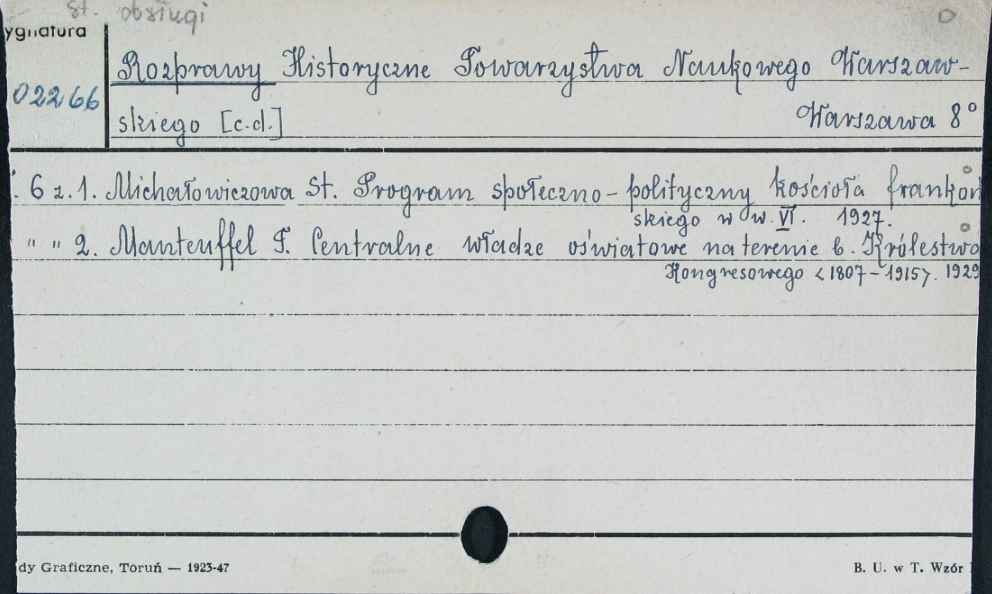 st. obsługi
ygnatura
02266
Rozprawy Historyczne Towarzystwa Naukowego Warszaw-
skiego [c.d.] Warszawa 8°
. 6 z. 1. Michałowiczowa St. Program społeczno-polityczny kościoła frankoń
skiego w w. VI. 1927.
" " 2. Manteuffel T. Centralne władze oświatowe na terenie b. Królestwa
Kongresowego <1807-1915>. 1929
dy Graficzne, Toruń — 1923-47
B. U. w T. Wzór